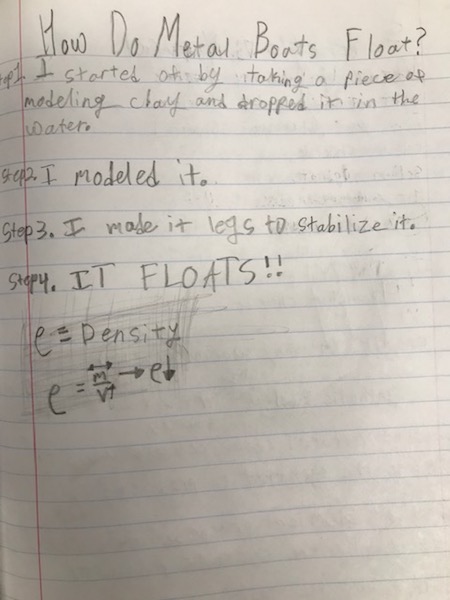 How Do Metal Boats Float?
ep1. I started of by taking a piece of
modeling clay and dropped it in the
water.
Step2. I modeled it.
Step3. I made it legs to stabilize it.
Step4. IT FLOATS!!
ρ = Density
ρ = m↔/V↑ → ρ↓